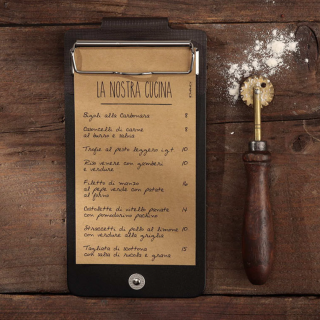 LA NOSTRA CUCINA
Bigoli alla Carbonara 8
Casoncelli di carne 8
al burro e salvia
Trofie al pesto leggero i.g.t. 10
Riso venere con gamberi 10
e verdure
Filetto di manzo 16
al pepe verde con patata
al forno
Cotoletta di vitello panata 14
con pomodorino pachino
Straccetti di pollo al limone 10
con verdure alla griglia
Tagliata di scottona 15
con salsa di rucola e grana